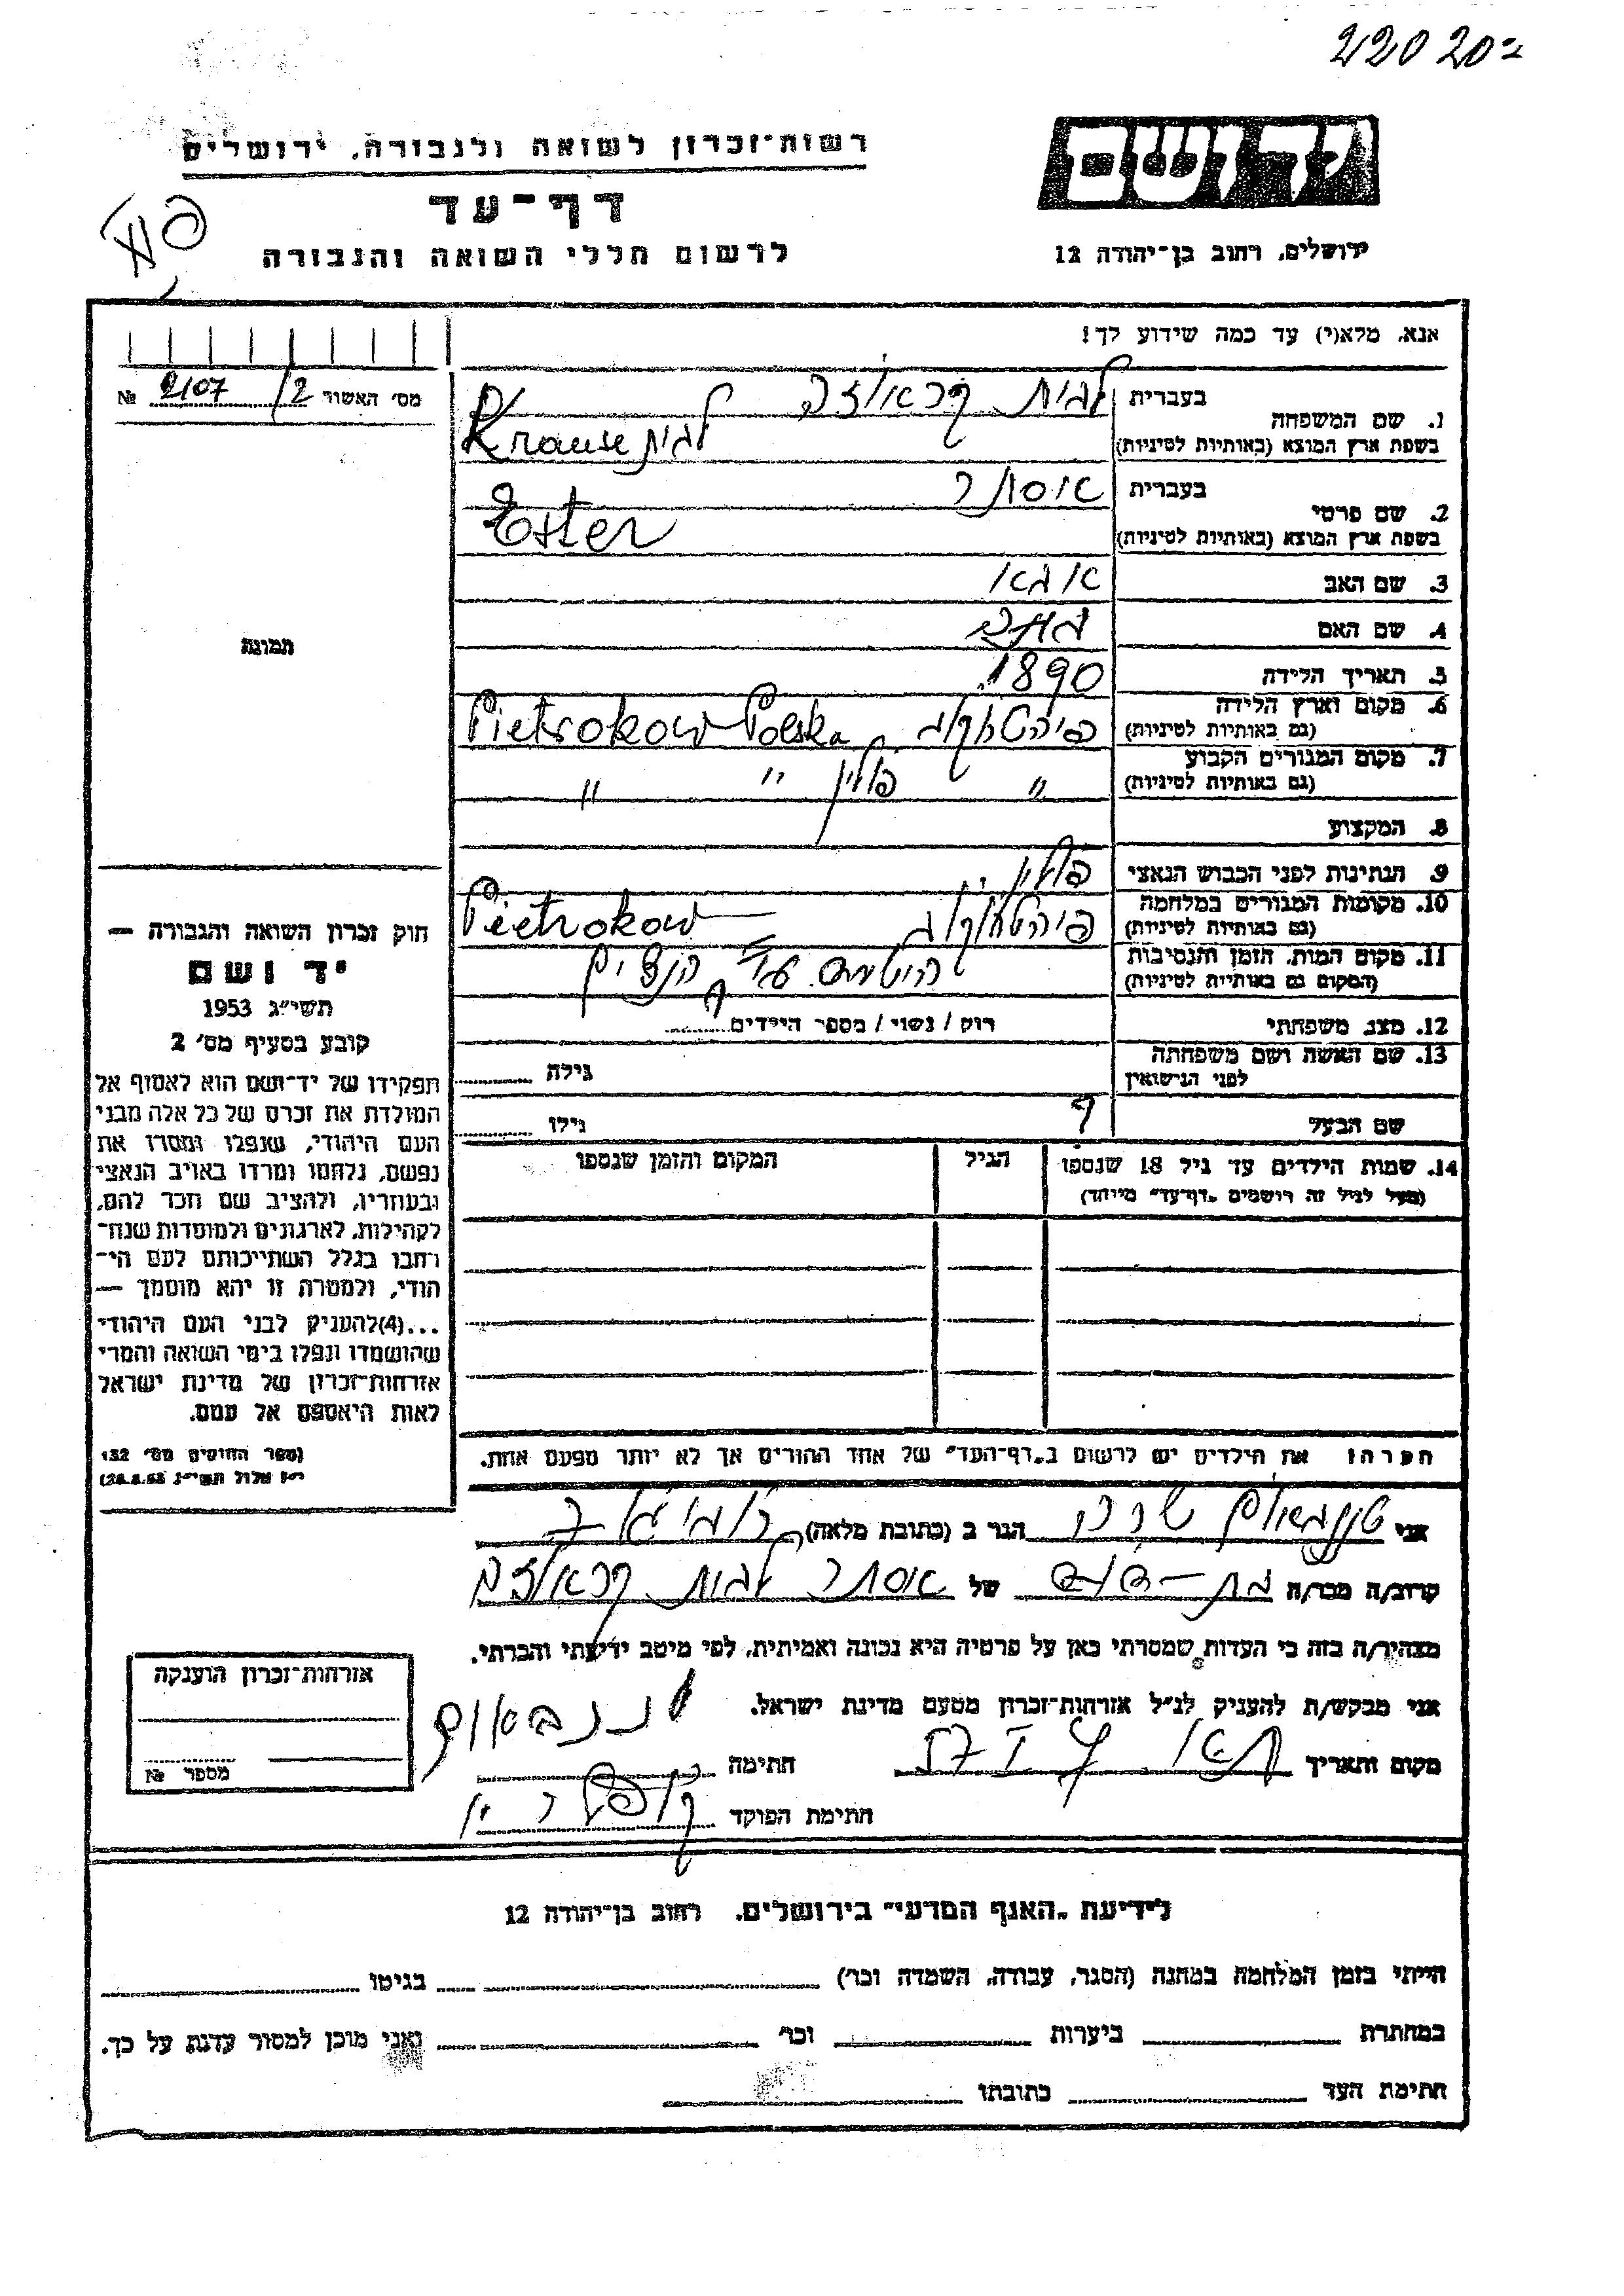 22020
רשות־זכרון לשואה ולגבורה, ירושלים
דף־עד
לרשום חללי השואה והגבורה
ירושלים, רחוב בן־יהודה 12
אנא, מלא(י) עד כמה שידוע לך!
מס׳ האשור 2/ 2107 №
1. שם המשפחה
בעברית
לבית
בשפת ארץ המוצא (באותיות לטיניות)
Krause לבית
2. שם פרטי
בעברית אסתר
בשפת ארץ המוצא (באותיות לטיניות)
Ester
3. שם האב
4. שם האם
5. תאריך הלידה 1890
6. מקום וארץ הלידה
(גם באותיות לטיניות) Pietrokow Polska
7. מקום המגורים הקבוע
(גם באותיות לטיניות) " פולין " "
8. המקצוע
9. הנתינות לפני הכבוש הנאצי פולין
10. מקומות המגורים במלחמה
(גם באותיות לטיניות) Pietrokow
11. מקום המות, הזמן והנסיבות
(המקום גם באותיות לטיניות)
12. מצב משפחתי רוק / נשוי / מספר הילדים
13. שם האשה ושם משפחתה
לפני הנישואין
גילה
שם הבעל
גילו
14. שמות הילדים עד גיל 18 שנספו
(מעל לגיל זה רושמים „דף־עד״ מיוחד)
הגיל
המקום והזמן שנספו
תמונה
חוק זכרון השואה והגבורה —
יד ושם
תשי״ג 1953
קובע בסעיף מס׳ 2
תפקידו של יד־ושם הוא לאסוף אל
המולדת את זכרם של כל אלה מבני
העם היהודי, שנפלו ומסרו את
נפשם, נלחמו ומרדו באויב הנאצי
ובעוזריו, ולהציב שם וזכר להם,
לקהילות, לארגונים ולמוסדות שנח־
רבו בגלל השתייכותם לעם הי־
הודי, ולמטרה זו יהא מוסמך —
...(4)להעניק לבני העם היהודי
שהושמדו ונפלו בימי השואה והמרי
אזרחות־זכרון של מדינת ישראל
לאות היאספם אל עמם.
(ספר החוקים מס׳ 132
י״ז אלול תשי״ג 28.8.53)
הערה: את הילדים יש לרשום ב„דף־העד״ של אחד ההורים אך לא יותר מפעם אחת.
אני הגר ב (כתובת מלאה)
קרוב/ה מכר/ה של אסתר לבית
מצהיר/ה בזה כי העדות שמסרתי כאן על פרטיה היא נכונה ואמיתית, לפי מיטב ידיעתי והכרתי.
אני מבקש/ת להעניק לנ״ל אזרחות־זכרון מטעם מדינת ישראל.
מקום ותאריך חתימה
חתימת הפוקד
אזרחות־זכרון הוענקה
מספר №
לידיעת „האגף המדעי״ בירושלים, רחוב בן־יהודה 12
הייתי בזמן המלחמה במחנה (הסגר, עבודה, השמדה וכו׳) בגיטו
במחתרת ביערות וכו׳ ואני מוכן למסור עדות על כך.
חתימת העד כתובתו